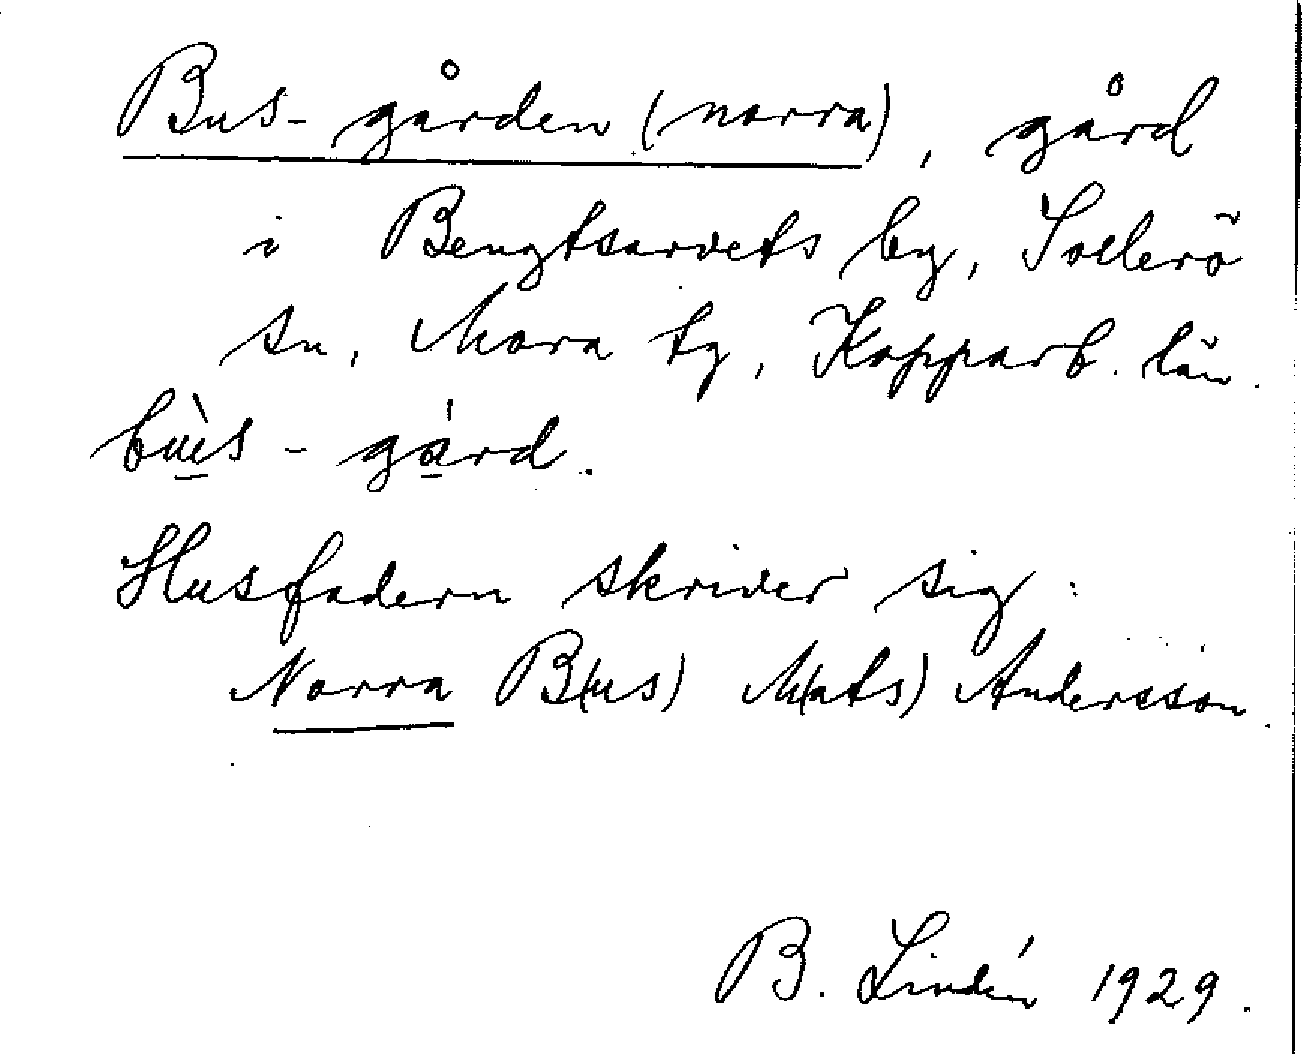 Bus-gården (norra), gård
i Bengtsarvets by, Sollerö
sn, Mora tg, Kopparb. län.
bùs - gárd.
Husfadern skriver sig:
Norra B(us) M(ats) Andersson.
B. Lindén 1929.